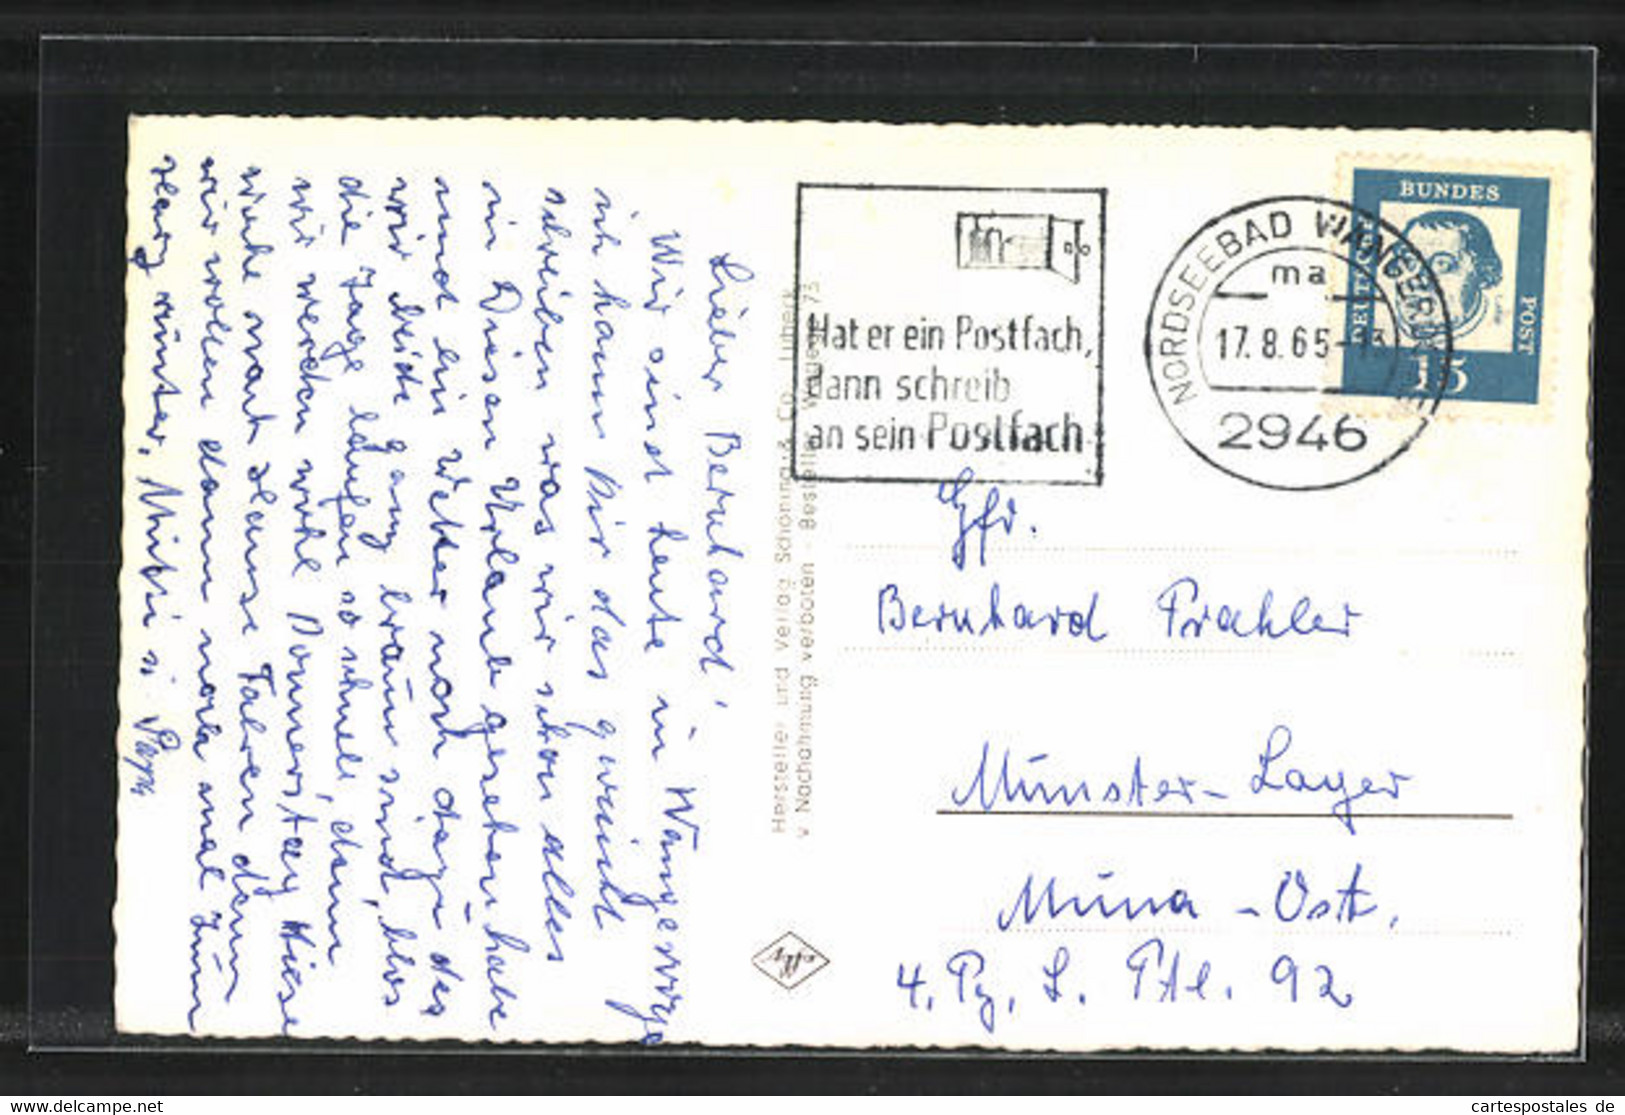 Lieber Bernhard!
Wir sind heute in Wangerooge
ich kann Dir das gwicht
schreiben was wir schon alles
in Diesen Urlaub gesehen habe
und ein Wetter noch dazu das
wir beide ganz braun sind, blos
die Tage laufen so schnel, dann
wir werden wohl Donnerstag diese
Woche nach Hause Fahren denn
wir wollen dann noch mal zum
runter, Mutti u. Papa
Hersteller und Verlag Schöning & Co., Lübeck
Nachahmung verboten - Bestell-Nr.
Hat er ein Postfach,
dann schreib
an sein Postfach
NORDSEEBAD WANGEROOGE
ma
17.8.65-13
2946
DEUTSCHE
BUNDES
POST
15
Gfr.
Bernhard Prahler
Münster-Lager
Muna-Ost,
4. Pz. L. Btl. 92
cartespostales de